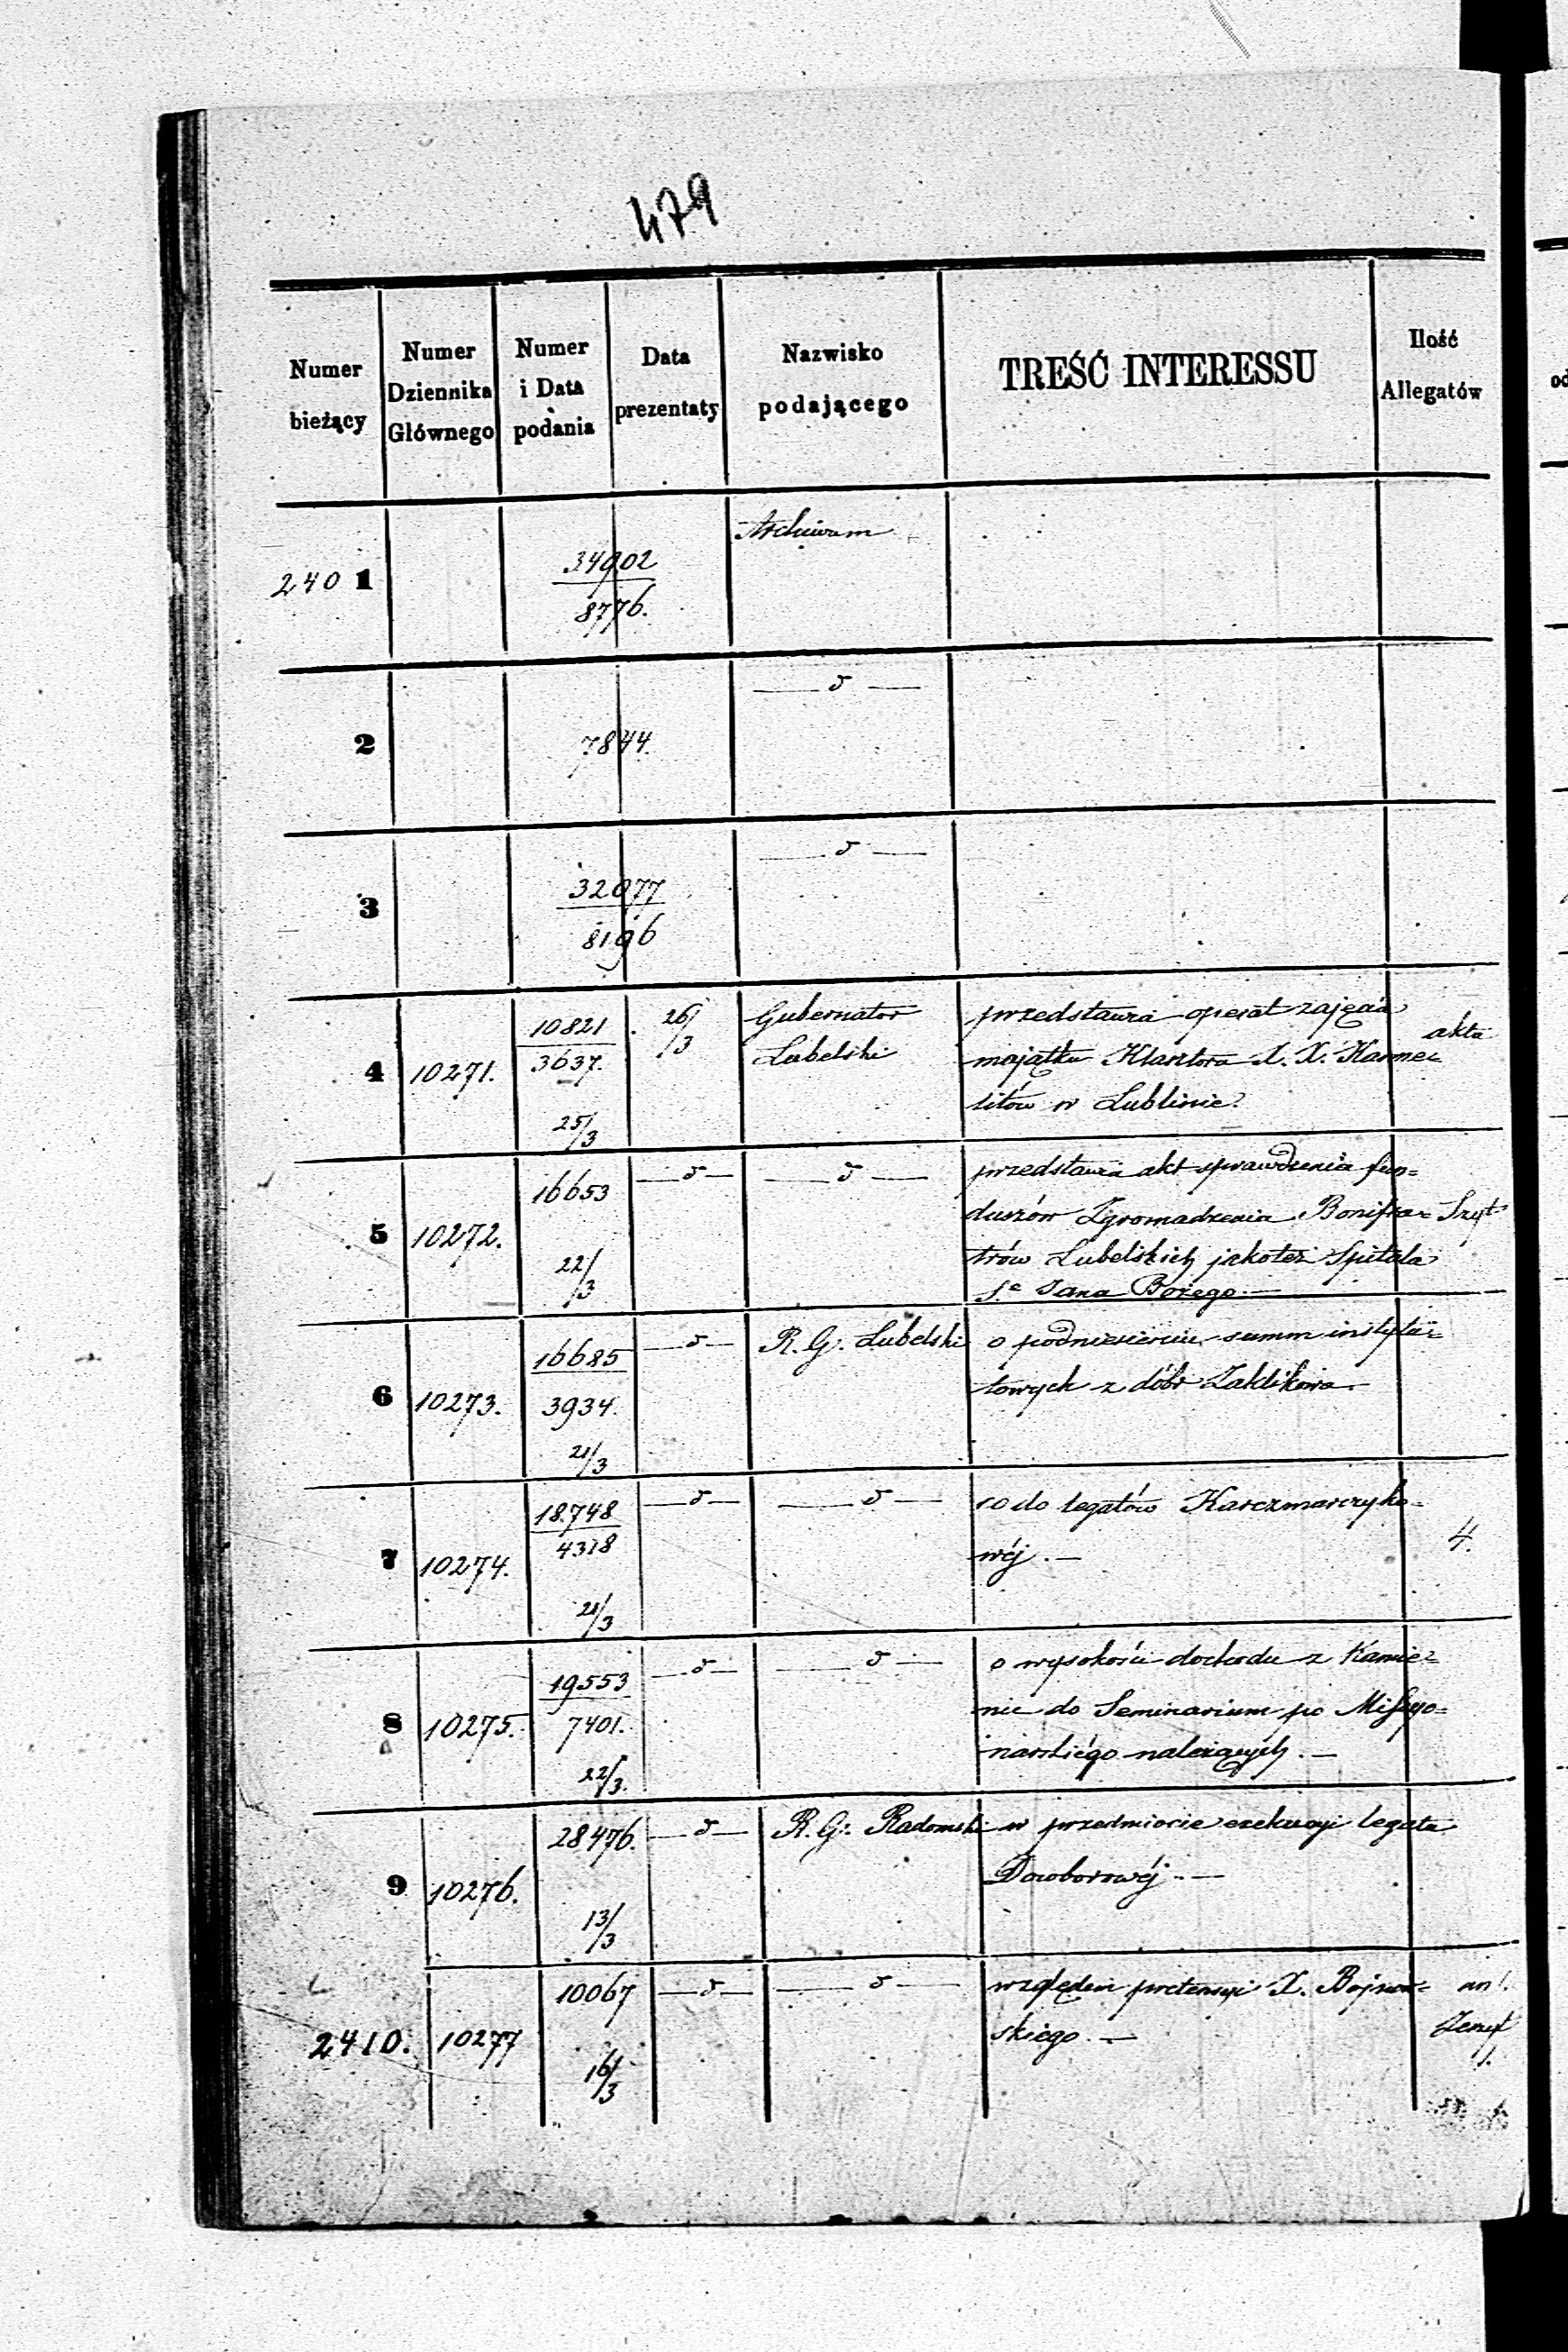 479
Numer bieżący | Numer Dziennika Głównego | Numer i Data podania | Data prezentaty | Nazwisko podającego | TREŚĆ INTERESSU | Ilość Allegatów
2401 | 34902 / 8776. | Archiwum
2 | 7844. | — d —
3 | 32077 / 8196 | — d —
4 | 10271. | 10821 / 3637. 25/3 | 26/3 | Gubernator Lubelski | przedstawia operat zajęcia
majątku Klasztora X. X. Karme= | akta
litów w Lublinie.
5 | 10272. | 16653 22/3 | — d — | — d — | przedstawia akt sprawdzenia fun=
duszów Zgromadzenia Bonifra= | Szyt
trów Lubelskich jakoteż Szpitala
Sgo Jana Bożego. —
6 | 10273. | 16685 / 3934. 21/3 | — d — | R. G. Lubelski | o podniesieniu summ instytu=
towych z dóbr Zaklikowa. —
7 | 10274. | 18748 / 4318 21/3 | — d — | — d — | co do legatów Karczmarczyko=
wéj. — | 4.
8 | 10275. | 19553 / 7401. 22/3. | — d — | — d — | o wysokości dochodu z Kamie=
nic do Seminarium po Missyo=
narskiégo należących. —
9 | 10276. | 28476. 13/3 | — d — | R. G. Radomski | w przedmiocie exekucyi legatu
Dowborowéj. —
2410. | 10277 | 10067 16/3 | — d — | — d — | względem pretensyi X.
skiego. —